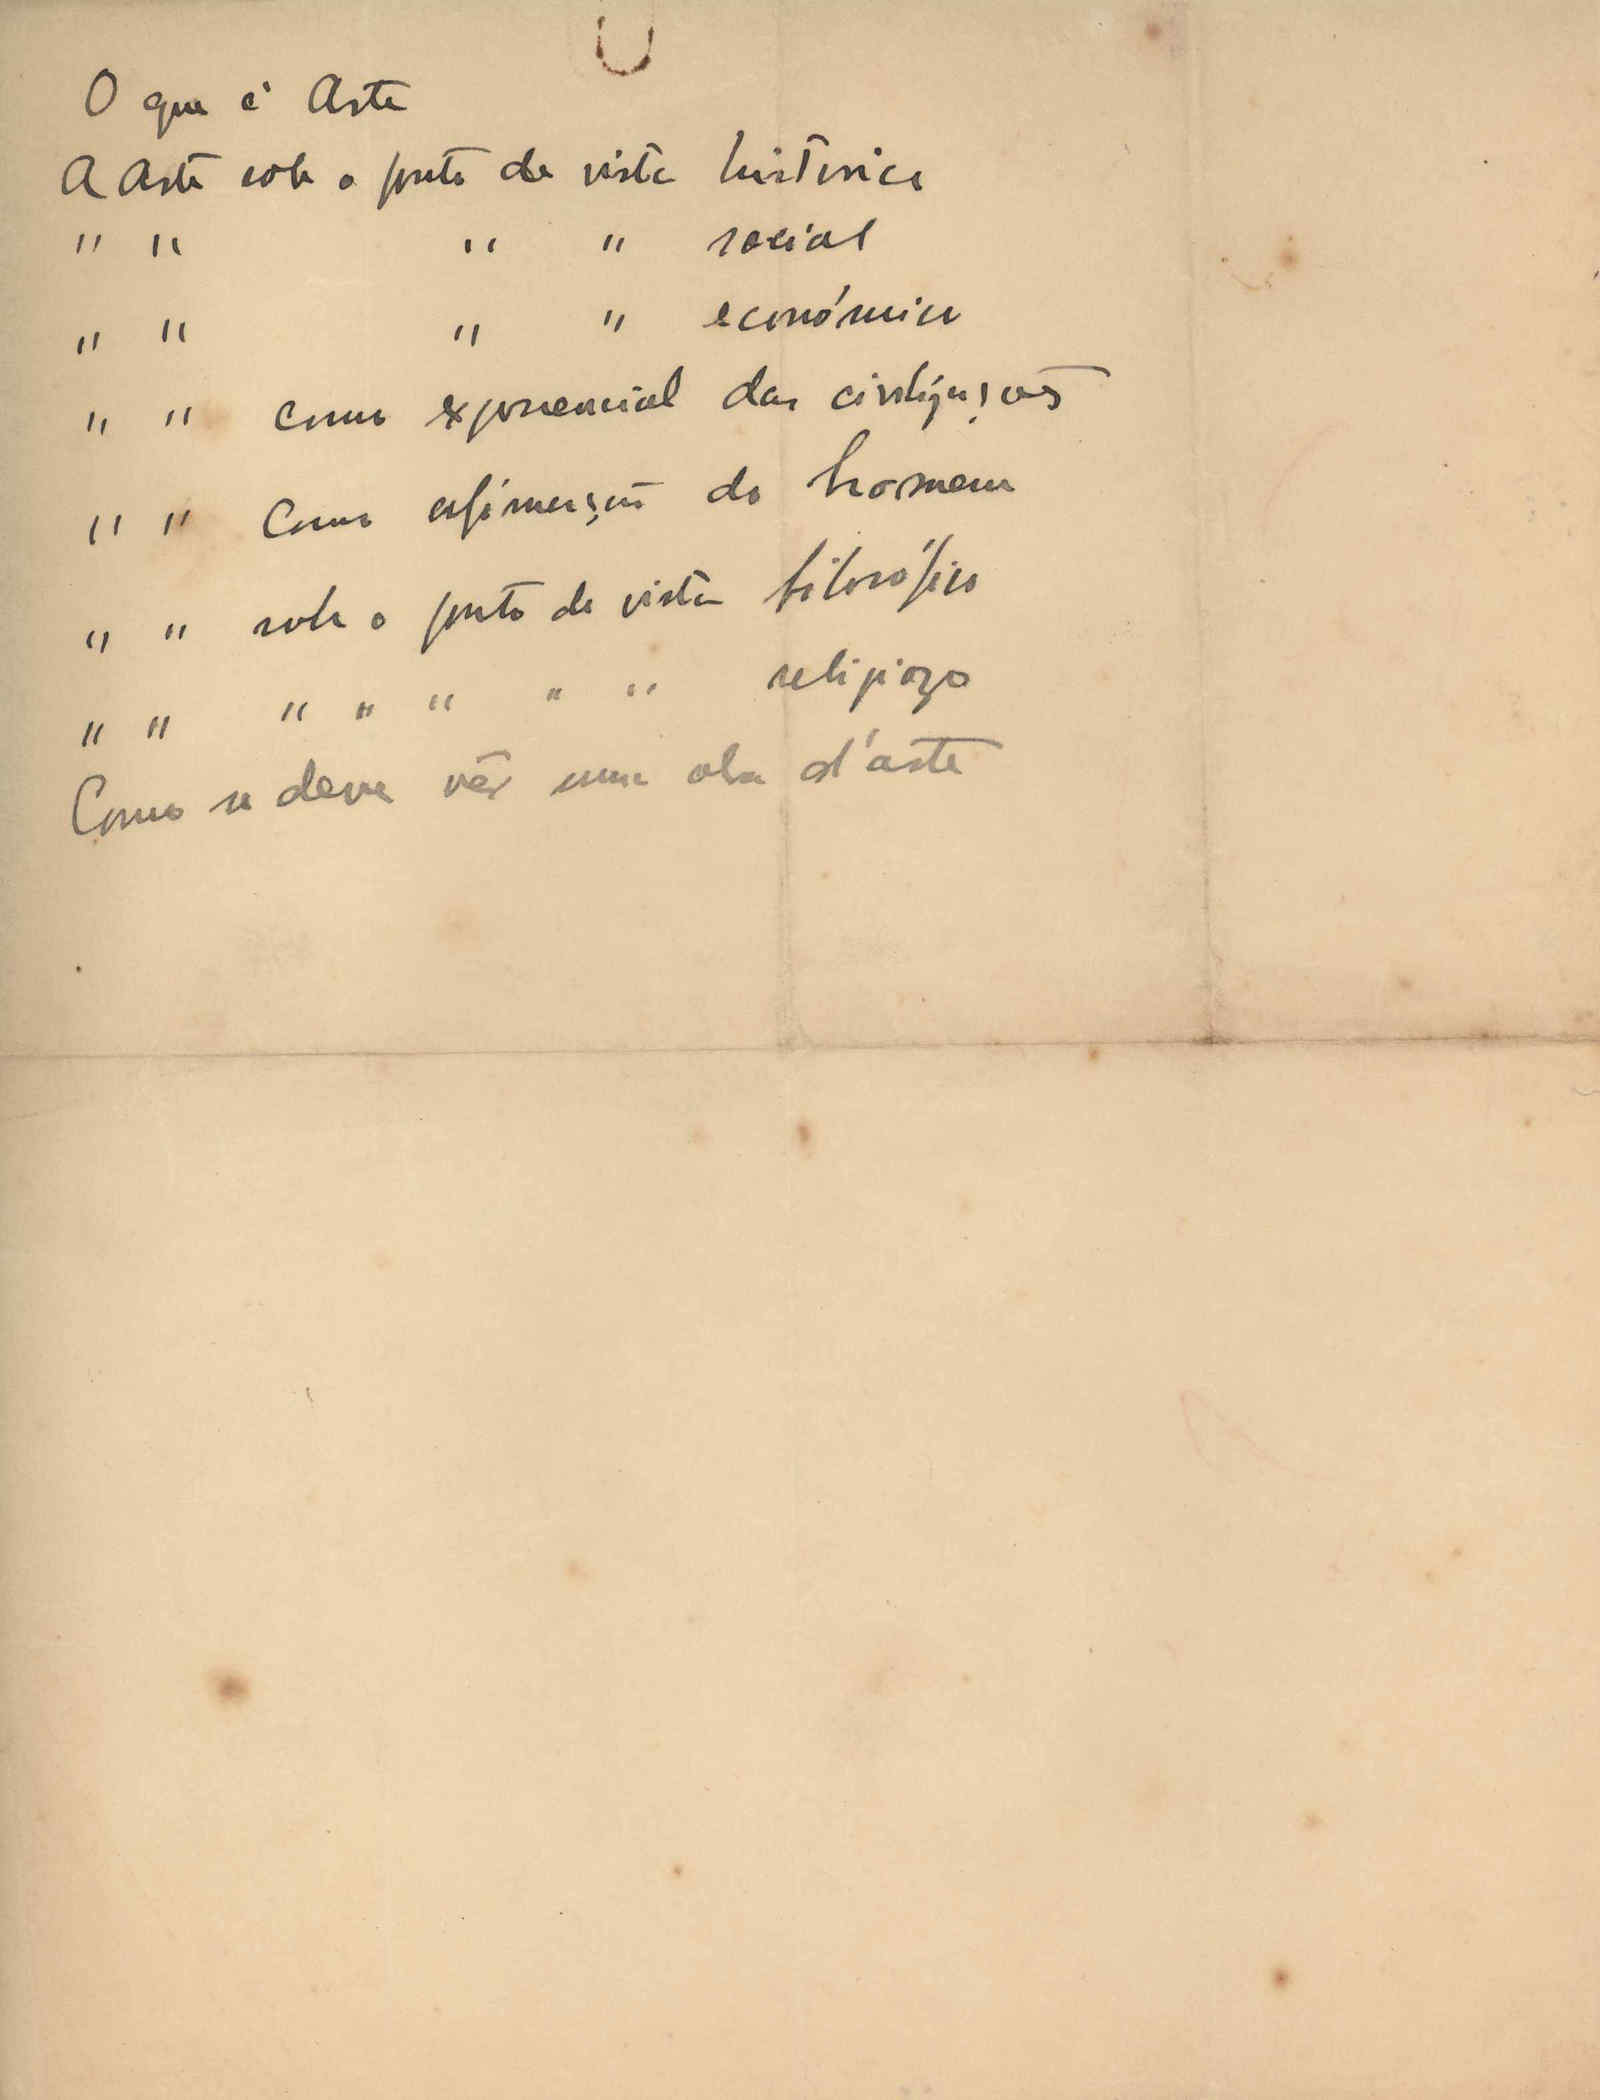 O que é Arte
A Arte sob o ponto de vista historico
" " " " social
" " " " económico
" " como exponencial das civilizações
" " Como afirmação do homem
" " sob o ponto de vista filosófico
" " " " " " " religiozo
Como se deve vêr uma obra d'arte